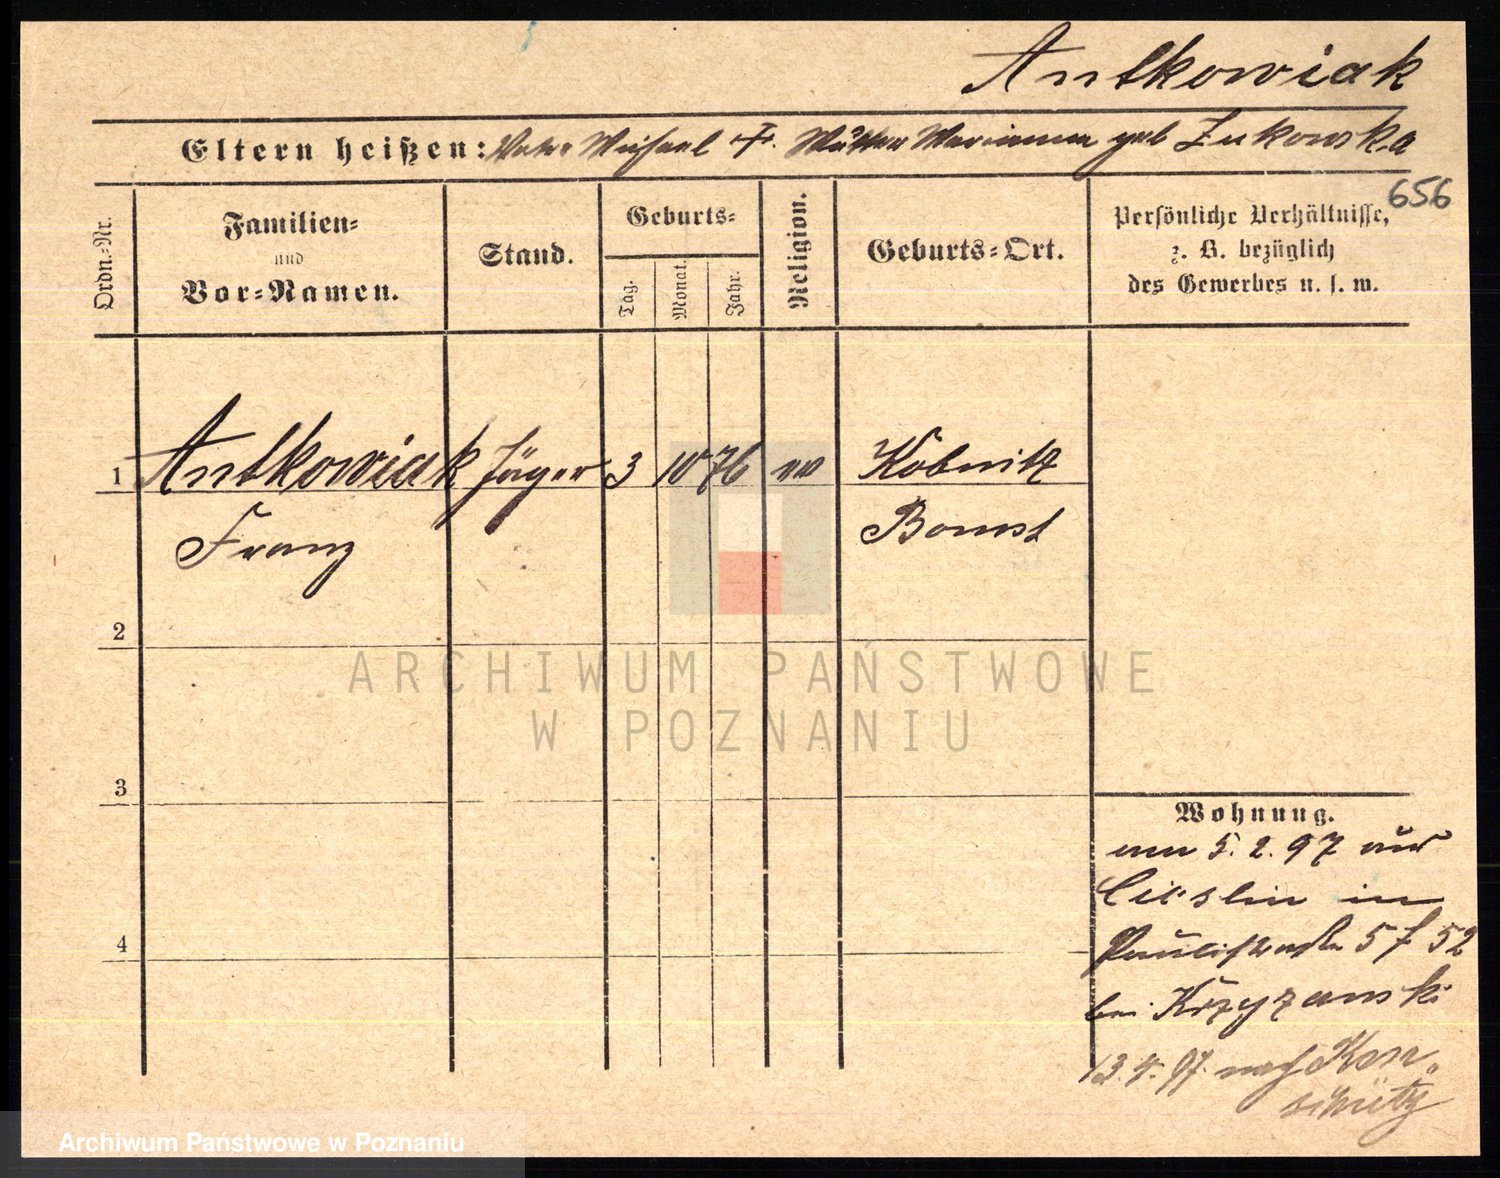 Antkowiak
Eltern heißen: Vater Michael †. Mutter Marianna geb Zukowska
656
Ordn.-Nr.
Familien-
und
Vor-Namen.
Stand.
Geburts-
Tag.
Monat.
Jahr.
Religion.
Geburts-Ort.
Persönliche Verhältnisse,
z. B. bezüglich
des Gewerbes u. s. w.
1 Antkowiak Jäger 3 10 76 Köbnitz
Franz Bomst
2
ARCHIWUM PAŃSTWOWE
W POZNANIU
3
Wohnung.
am 5. 2. 97 aus
in
4
Paulistraße 5 52
bei Krzyzanski
13.4.97. nach
Archiwum Państwowe w Poznaniu